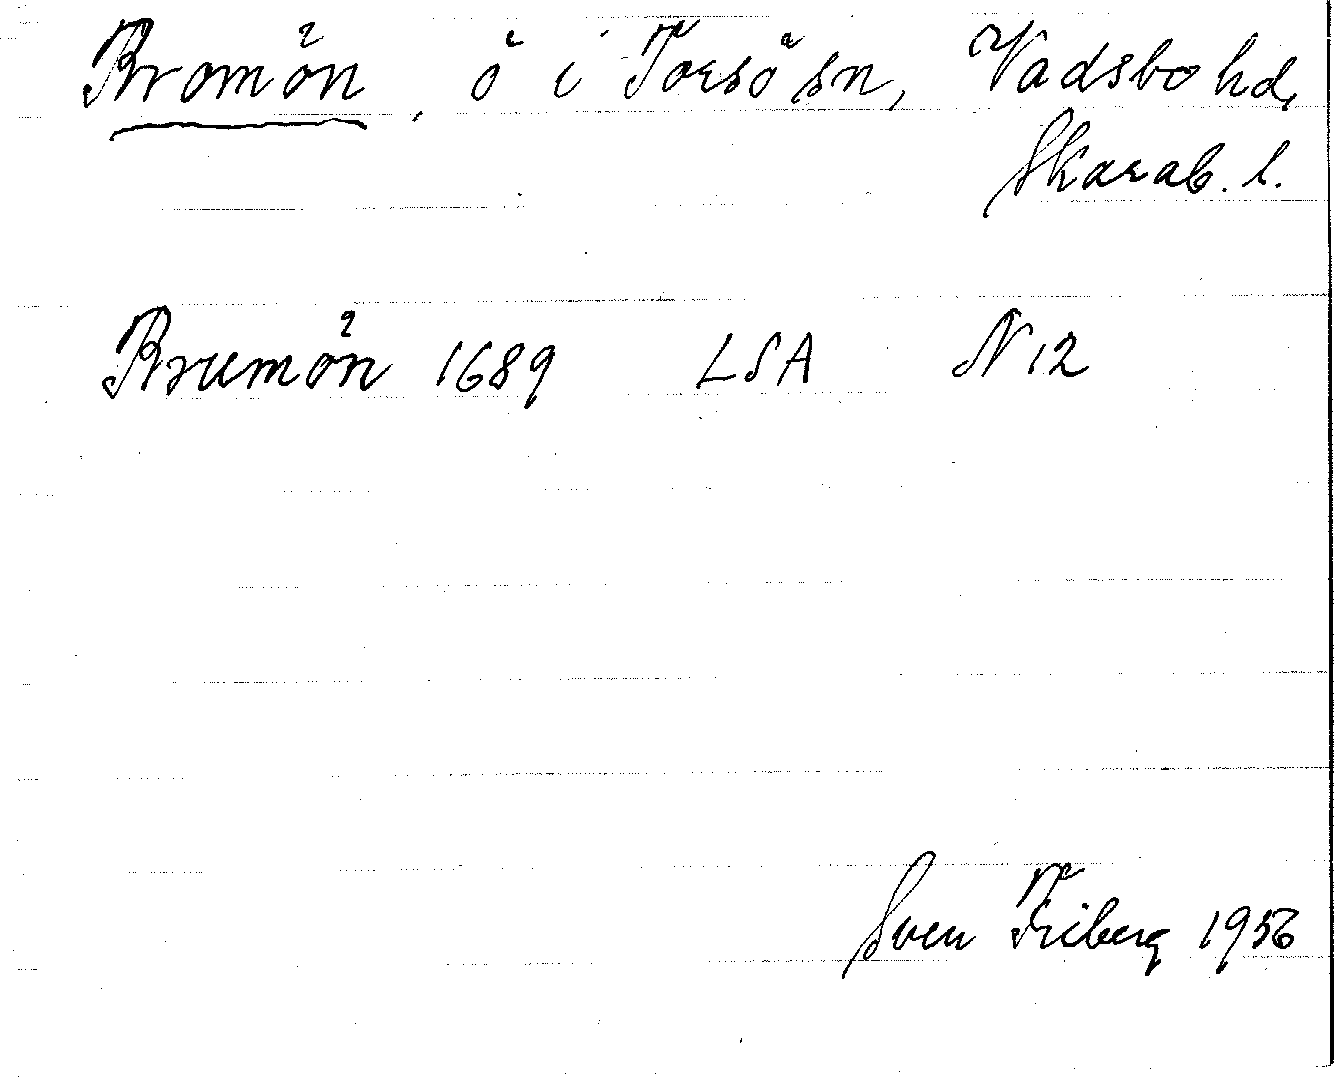 Bromön, ö i Torsö sn, Vadsbo hd,
Skarab. l.
Brumön 1689 LSA N 12
Sven Friberg 1956